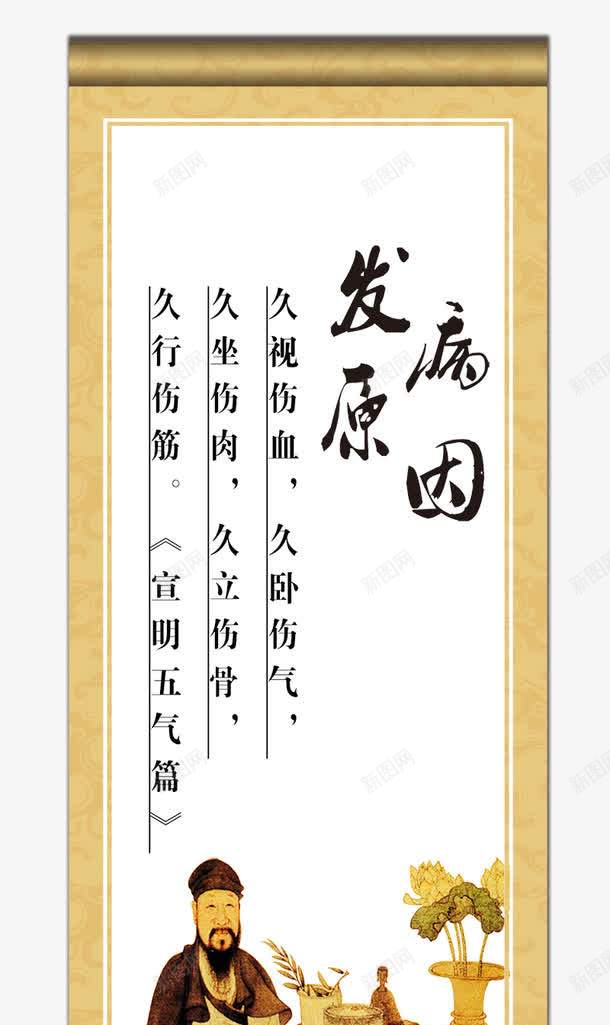 发病
原因
久视伤血，久卧伤气，
久坐伤肉，久立伤骨，
久行伤筋。《宣明五气篇》
新图网